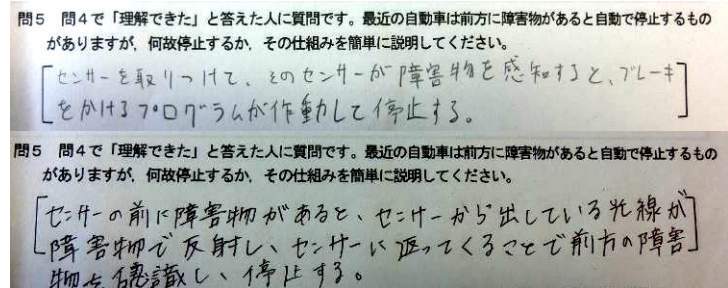 問5 問4で「理解できた」と答えた人に質問です。最近の自動車は前方に障害物があると自動で停止するもの
がありますが,何故停止するか,その仕組みを簡単に説明してください。
センサーを取りつけて、そのセンサーが障害物を感知すると、ブレーキ
をかけるプログラムが作動して停止する。
問5 問4で「理解できた」と答えた人に質問です。最近の自動車は前方に障害物があると自動で停止するもの
がありますが,何故停止するか,その仕組みを簡単に説明してください。
センサーの前に障害物があると、センサーから出している光線が
障害物で反射し、センサーに返ってくることで前方の障害
物を認識し、停止する。